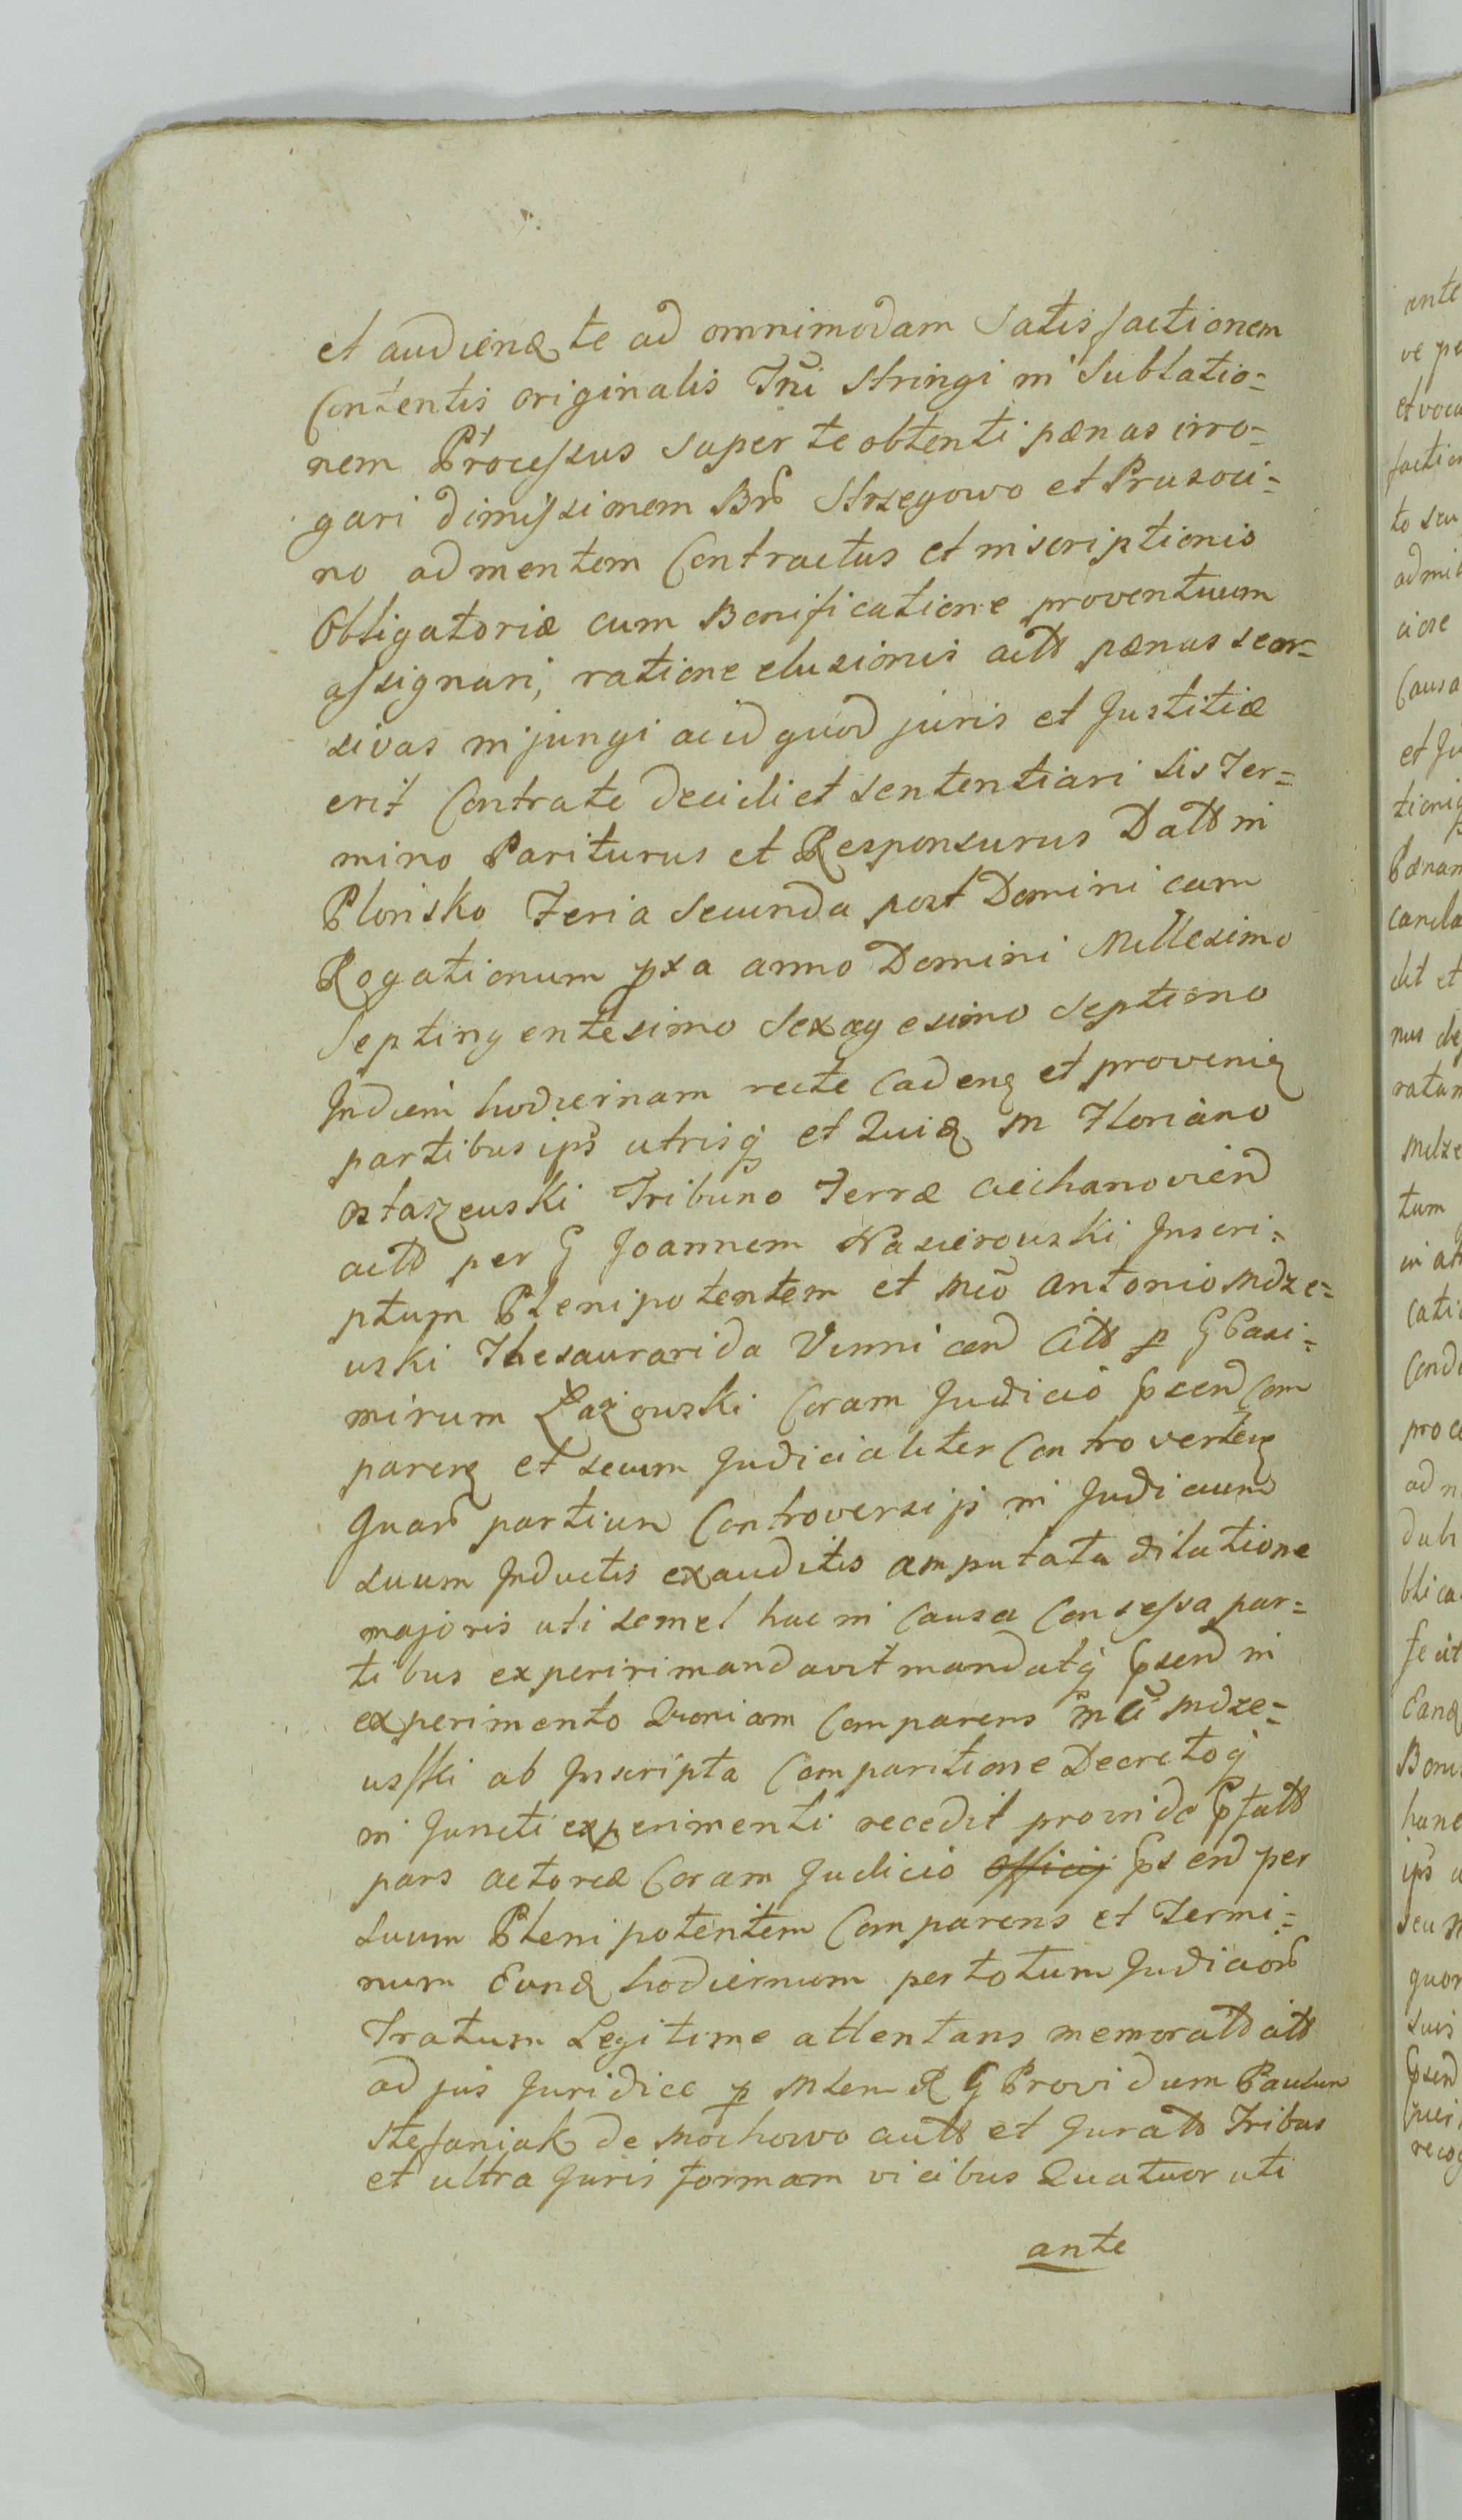 et audiend te ad omnimodam Satisfactionem
Contentis originalis Iñi Stringi in Sublatio=
nem Processus super te obtenti pænas irro=
gari dimissionem Brd Strzegowo et Prusoci=
no ad mentem Contractus et inscriptionis
Obligatoriæ cum Bonificatione proventuum
assignari, ratione elusionis actt pænas seor=
sivas injungi ac id quod juris et Justitiæ
erit Contra te decidi et sententiari sis Ter=
mino Pariturus et Responsurus Datt in
Plonsko Feria Secunda post Dominicam
Rogationum pxa anno Domini Millesimo
Septingentesimo Sexagesimo Septimo
In diem hodiernam recte Cadend et proveniend
partibus ips utrisq et Quid M Floriano
Ostaszeuski Tribuno Terræ Ciechanoviend
actt per G Joannem Nasierouski Inscri=
ptum Plenipotentem et Mco Antonio Mdze=
uski Thesaurarida Vinnicend Citt p G Casi=
mirum Łazouski Coram Judicio Psend Com
parend et secum Judicialiter Controvertend
Quard partium Controversijs in Judicium
suum Inductis exauditis amputata dilatione
majoris uti semel hac in Causa Consessa par=
tibus experiri mandavit mandatq Psend in
experimento Quoniam Comparens M Mdze=
usski ab Inscripta Comparitione Decretoq
in Juncti experimenti recedit proinde Pfatt
pars actorea Coram Judicio officij Psend per
suum Plenipotentem Comparens et Termi=
num Eund hodiernum per totum Judiciord
Tratum Legitime attentans memoratt citt
ad jus Juridice p Mlem R G Providum Paulum
Stefaniak de Mochowo autt et Juratt Tribus
et ultra Juris formam vicibus Quatuor uti
ante
ante
ve pe
et voca
faction
to seu
admi
Causa
et Ju
Pænam
ratam
Mdze
tum
in
cati
Cond
proc
ad
dub
blica
fecit
Eand
Boni
hanc
ips
seu
quor
suis
Psend
recog